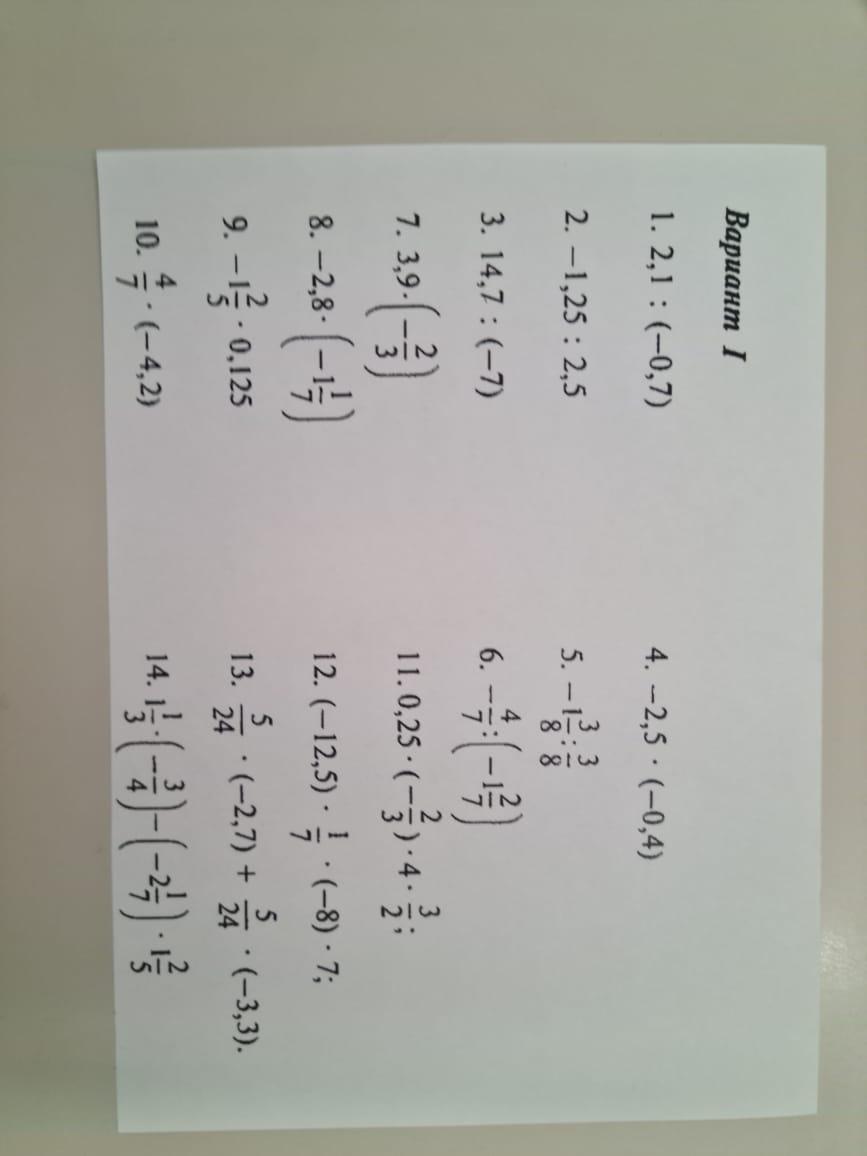 Вариант I
1. 2,1 : (−0,7)
2. −1,25 : 2,5
3. 14,7 : (−7)
7. 3,9 · (−2/3)
8. −2,8 · (−1 1/7)
9. −1 2/5 · 0,125
10. 4/7 · (−4,2)
4. −2,5 · (−0,4)
5. −1 3/8 : 3/8
6. −4/7 : (−1 2/7)
11. 0,25 · (−2/3) · 4 · 3/2;
12. (−12,5) · 1/7 · (−8) · 7;
13. 5/24 · (−2,7) + 5/24 · (−3,3).
14. 1 1/3 · (−3/4) − (−2 1/7) · 1 2/5